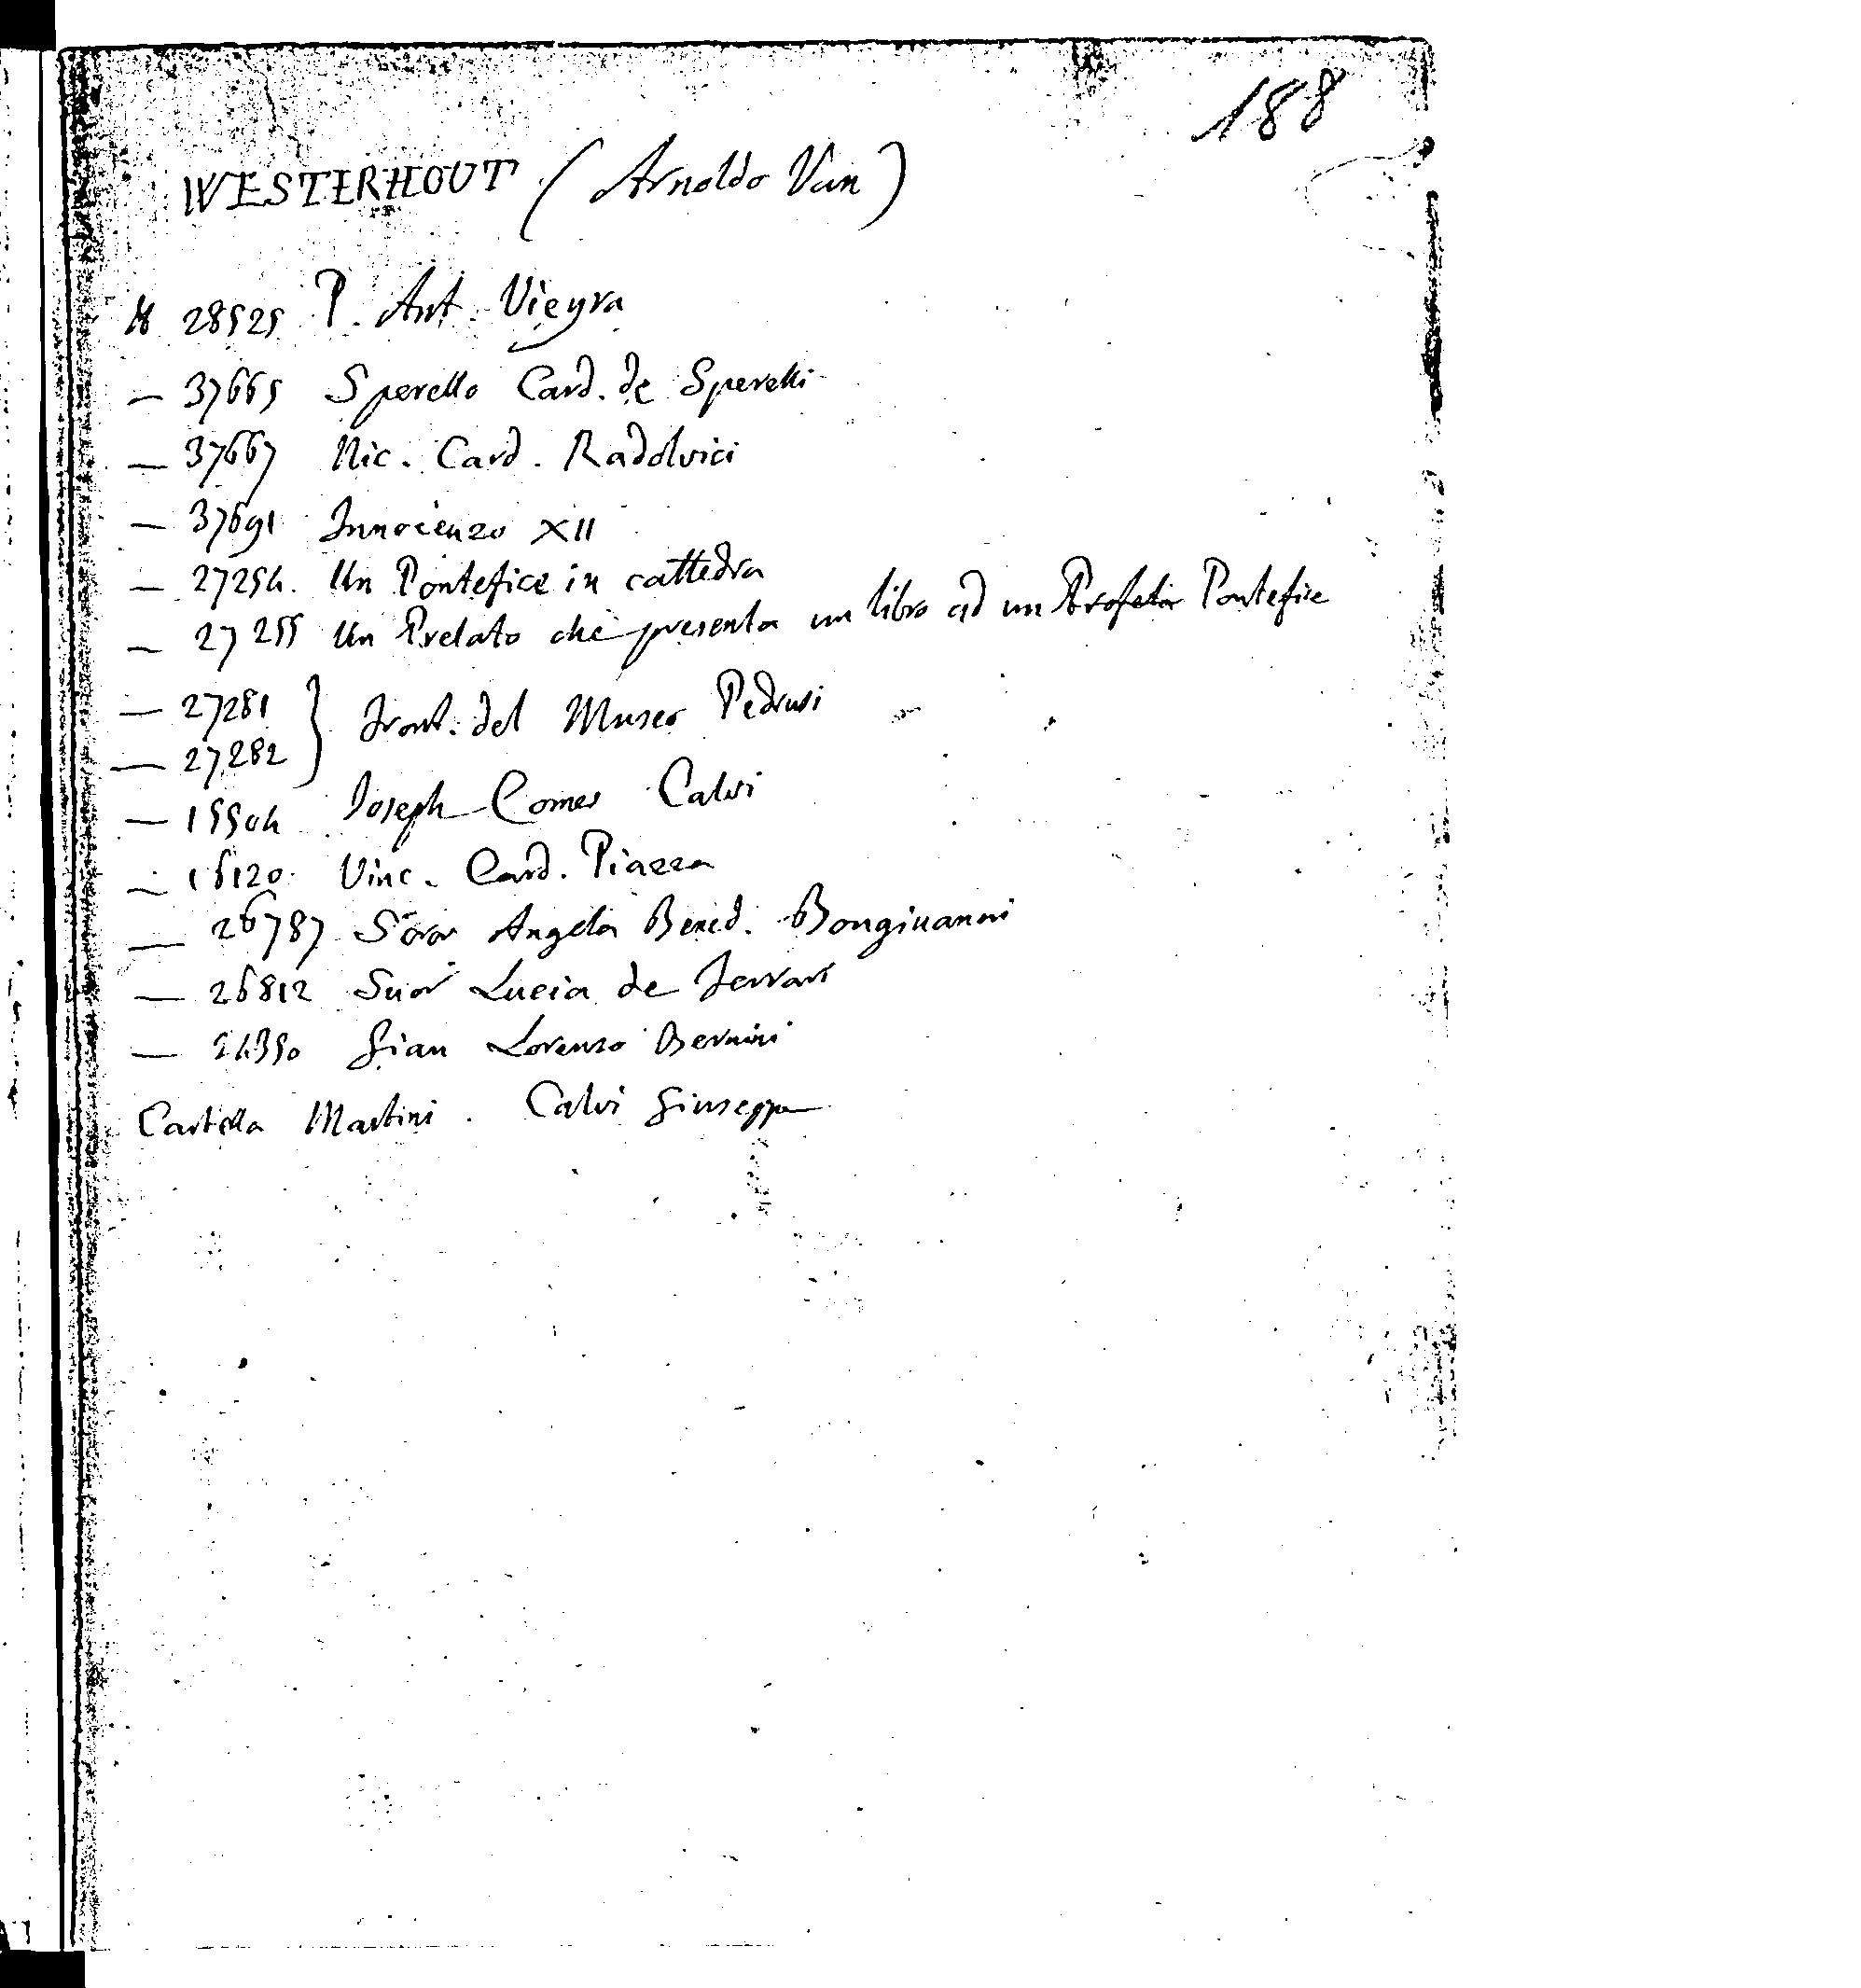 188
WESTERHOUT (Arnoldo Van)
M 28525 P. Ant. Vieyra
— 37665 Sperello Card. de Sperelli
— 37667 Nic. Card. Radolvici
— 37691 Innocenzo XII
— 27254. Un Pontefice in cattedra
— 27255 Un Prelato che presenta un libro ad un Profeta Pontefice
— 27281 } Front. del Museo Pedrusi
— 27282
— 15504 Joseph Comes Calvi
— 16120 Vinc. Card. Piazza
— 26787 Soror Angela Bened. Bongiuanni
— 26812 Suor Lucia de Ferrari
— 24350 Gian Lorenzo Bernini
Cartella Martini. Calvi Giuseppe